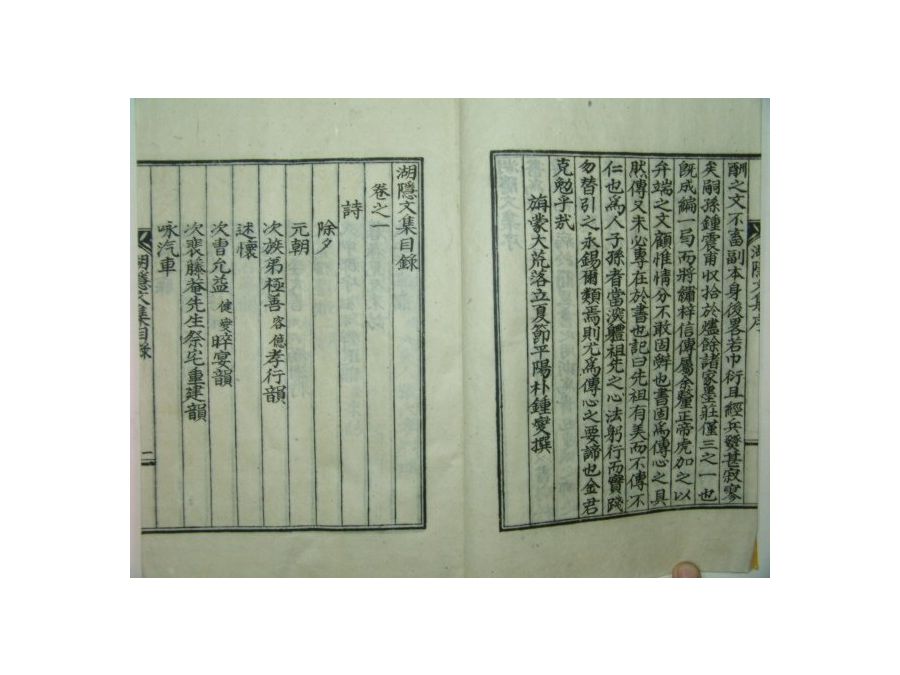 酬之文不畜副本身後畧若巾衍且經兵燹甚寂寥
矣嗣孫鍾震甫收拾於爐餘諸家墨莊僅三之一也
旣成編一局而將繡梓信傳屬余釐正帝虎加之以
弁端之文顧惟情分不敢固辭也書固爲傳心之具
然傳又未必專在於書也記曰先祖有美而不傳不
仁也爲人子孫者當深軆祖先之心法躬行而實踐
勿替引之永錫爾類焉則尤爲傳心之要諦也金君
克勉乎哉
旃蒙大荒落立夏節平陽朴鍾燮撰
湖隱文集序
湖隱文集目錄
卷之一
詩
除夕
元朝
次族弟極善容德孝行韻
述懷
次曺允益健燮晬宴韻
次裴藤菴先生祭宅重建韻
咏汽車
湖隱文集目錄
一